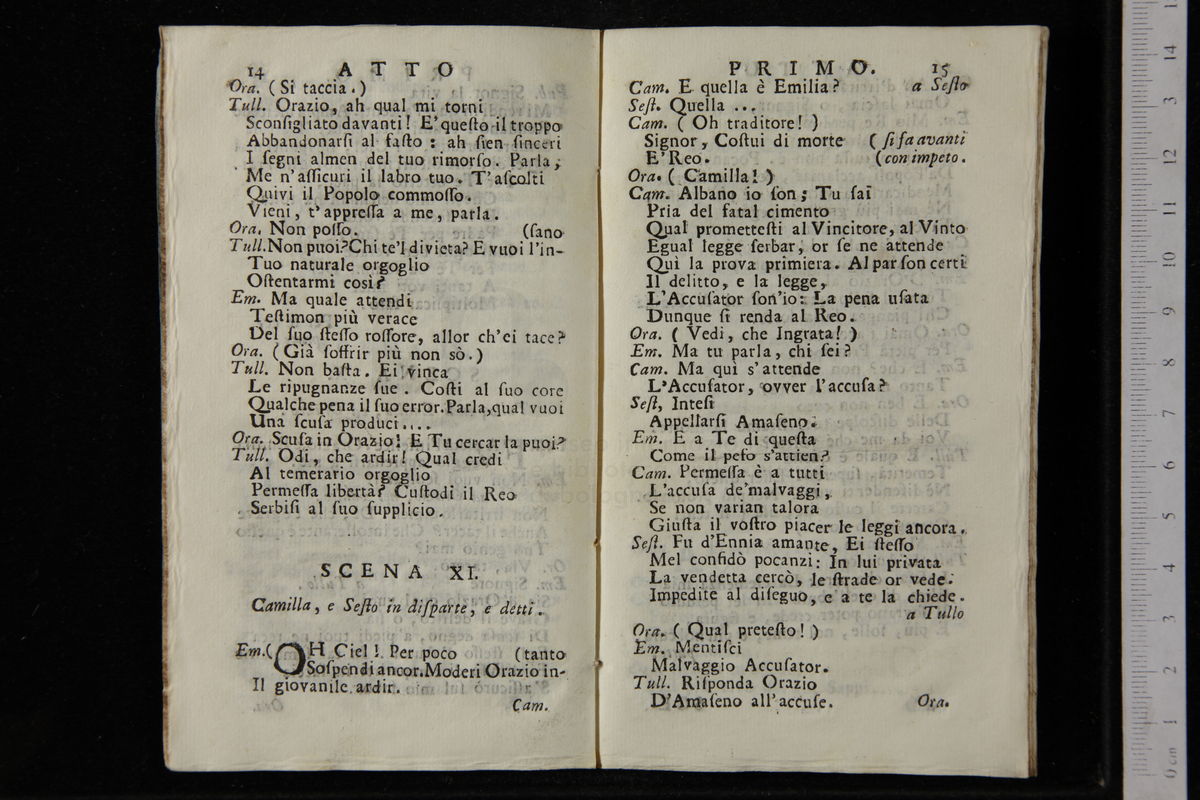 14 ATTO
Ora. (Si taccia.)
Tull. Orazio, ah qual mi torni
Sconſigliato davanti! E'queſto il troppo
Abbandonarſi al faſto : ah ſien ſinceri
I ſegni almen del tuo rimorſo. Parla,
Me n'aſſicuri il labro tuo. T'aſcolti
Quivi il Popolo commoſſo.
Vieni, t'appreſſa a me, parla.
Ora. Non poſſo. (ſano
Tull. Non puoi? Chi te'l divieta? E vuoi l'in-
Tuo naturale orgoglio
Oſtentarmi così?
Em. Ma quale attendi
Teſtimon più verace
Del ſuo ſteſſo roſſore, allor ch'ei tace?
Ora. (Già ſoffrir più non sò.)
Tull. Non baſta. Ei vinca
Le ripugnanze ſue. Coſti al ſuo core
Qualche pena il ſuo error. Parla, qual vuoi
Una ſcuſa produci....
Ora. Scuſa in Orazio! E Tu cercar la puoi?
Tull. Odi, che ardir! Qual credi
Al temerario orgoglio
Permeſſa libertà? Cuſtodi il Reo
Serbiſi al ſuo ſupplicio.
SCENA XI.
Camilla, e Seſto in diſparte, e detti.
Em. (OH Ciel! Per poco (tanto
Soſpendi ancor. Moderi Orazio in-
Il giovanile ardir.
Cam.
PRIMO. 15
Cam. E quella è Emilia? a Seſto
Seſt. Quella ...
Cam. ( Oh traditore! )
Signor, Coſtui di morte (ſi fa avanti
E'Reo. (con impeto.
Ora. ( Camilla! )
Cam. Albano io ſon; Tu ſai
Pria del fatal cimento
Qual prometteſti al Vincitore, al Vinto
Egual legge ſerbar, or ſe ne attende
Quì la prova primiera. Al par ſon certi
Il delitto, e la legge,
L'Accuſator ſon'io: La pena uſata
Dunque ſi renda al Reo.
Ora. ( Vedi, che Ingrata! )
Em. Ma tu parla, chi ſei?
Cam. Ma quì s'attende
L'Accuſator, ovver l'accuſa?
Seſt, Inteſi
Appellarſi Amaſeno.
Em. E a Te di queſta
Come il peſo s'attien?
Cam. Permeſſa è a tutti
L'accuſa de'malvaggi,
Se non varian talora
Giuſta il voſtro piacer le leggi ancora.
Seſt. Fu d'Ennia amante, Ei ſteſſo
Mel confidò pocanzi: In lui privata
La vendetta cercò, le ſtrade or vede
Impedite al diſeguo, e a te la chiede.
a Tullo
Ora. ( Qual preteſto! )
Em. Mentiſci
Malvaggio Accuſator.
Tull. Riſponda Orazio
D'Amaſeno all'accuſe. Ora.